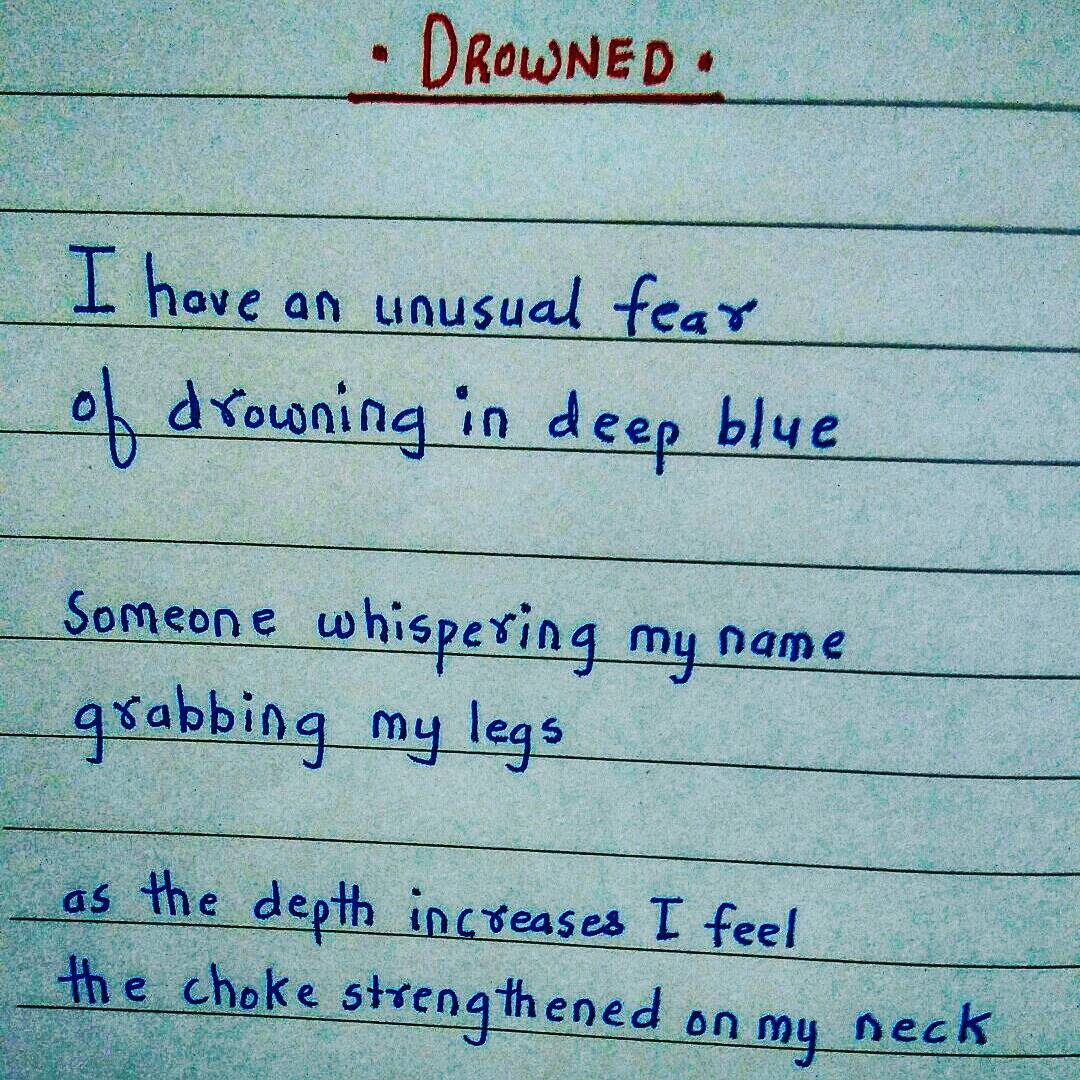 • DROWNED •
I have an unusual fear
of drowning in deep blue
Someone whispering my name
grabbing my legs
as the depth increases I feel
the choke strengthened on my neck